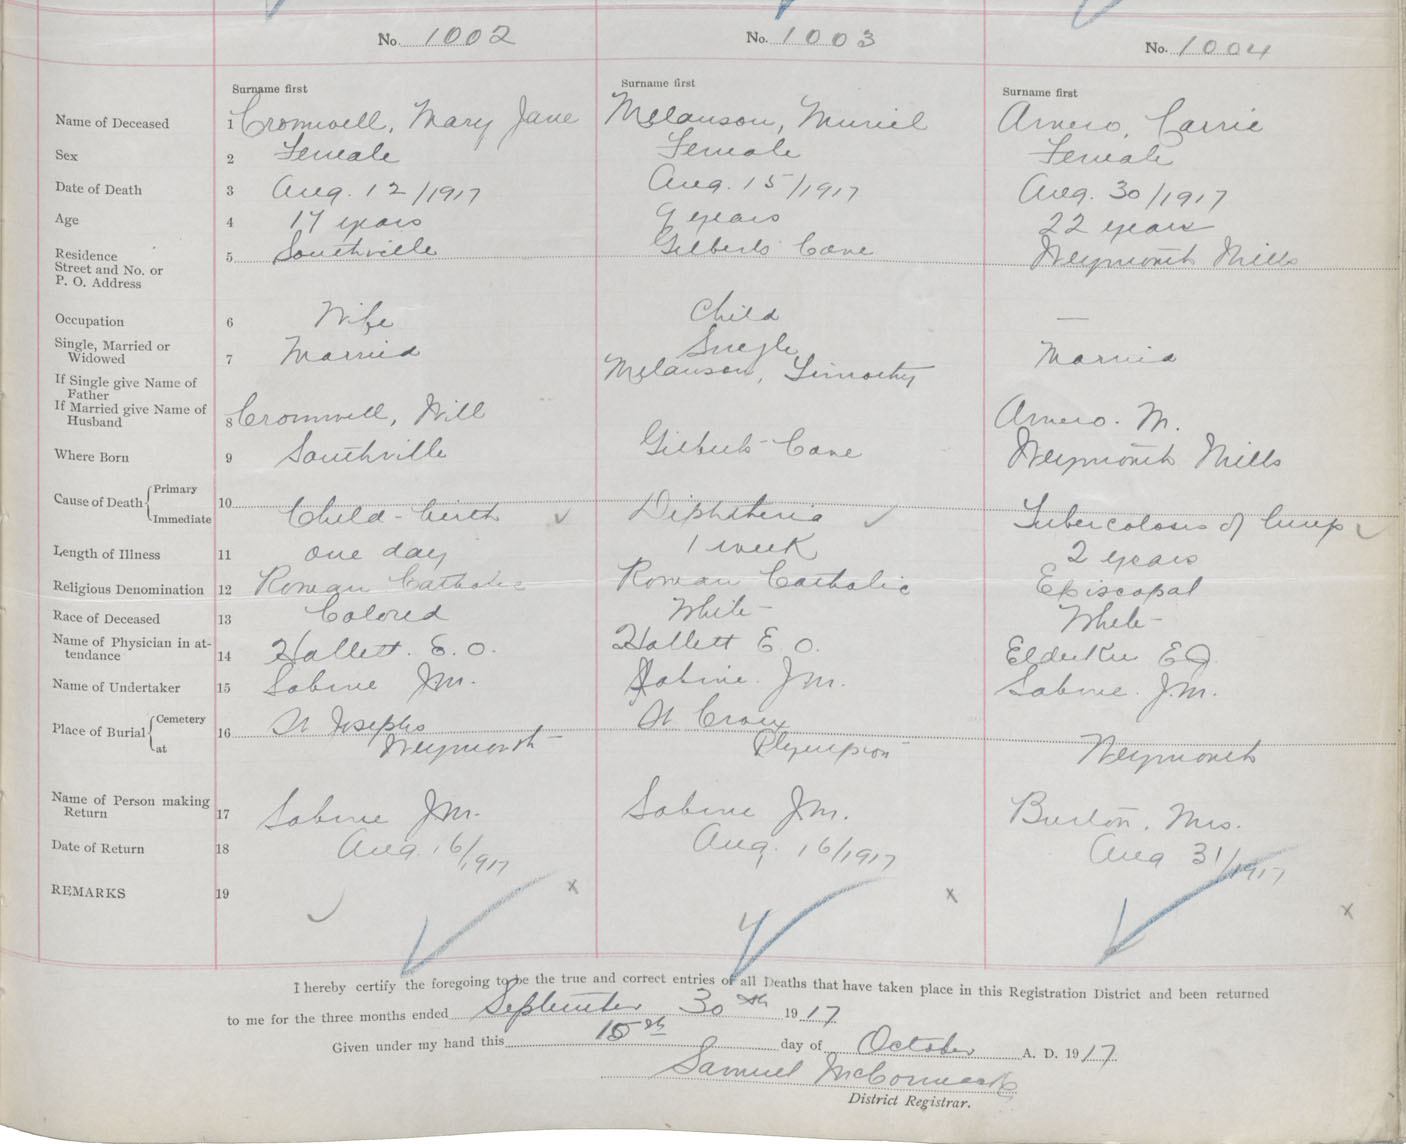 No. 1002 No. 1003 No. 1004
Surname first Surname first Surname first
Name of Deceased 1 Cromwell, Mary Jane Melanson, Muriel Amero, Carrie
Sex 2 Female Female Female
Date of Death 3 Aug. 12/1917 Aug. 15/1917 Aug. 30/1917
Age 4 17 years 9 years 22 years
Residence 5 Southville Gilberts Cove Weymouth Mills
Street and No. or
P. O. Address
Occupation 6 Wife Child —
Single, Married or
Widowed 7 Married Single Married
If Single give Name of
Father Melanson, Timothy
If Married give Name of
Husband 8 Cromwell, Will Amero. M.
Where Born 9 Southville Gilberts Cove Weymouth Mills
Cause of Death Primary 10
Immediate Child-birth Diphtheria Tubercolosis of lungs
Length of Illness 11 one day 1 week 2 years
Religious Denomination 12 Roman Catholic Roman Catholic Episcopal
Race of Deceased 13 Colored White White
Name of Physician in at-
tendance 14 Hallett. E. O. Hallett E O. Elderkin E J.
Name of Undertaker 15 Sabine J.M. Sabine. J M. Sabine. J.M.
Place of Burial Cemetery 16 St Josephs St Croix
at Weymouth Plympton Weymouth
Name of Person making
Return 17 Sabine J M. Sabine J M. Burton, Mrs.
Date of Return 18 Aug. 16/1917 Aug. 16/1917 Aug 31/1917
REMARKS 19 x x x
I hereby certify the foregoing to be the true and correct entries of all Deaths that have taken place in this Registration District and been returned
to me for the three months ended September 30th 1917
Given under my hand this 15th day of October A. D. 1917
Samuel McCormack
District Registrar.